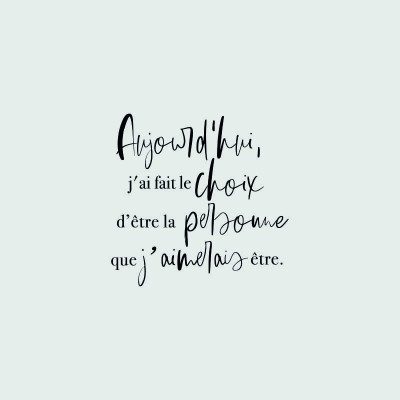 Aujourd'hui,
j'ai fait le choix
d'être la personne
que j'aimerais être.